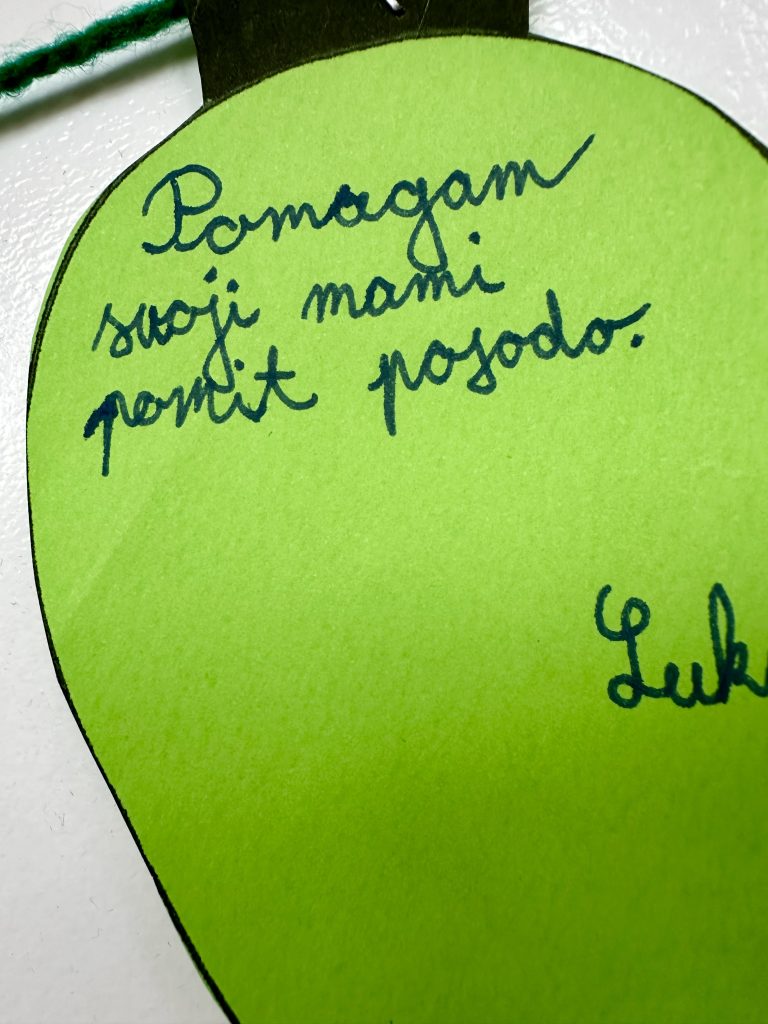 Pomagam
svoji mami
pomit posodo.
Luk